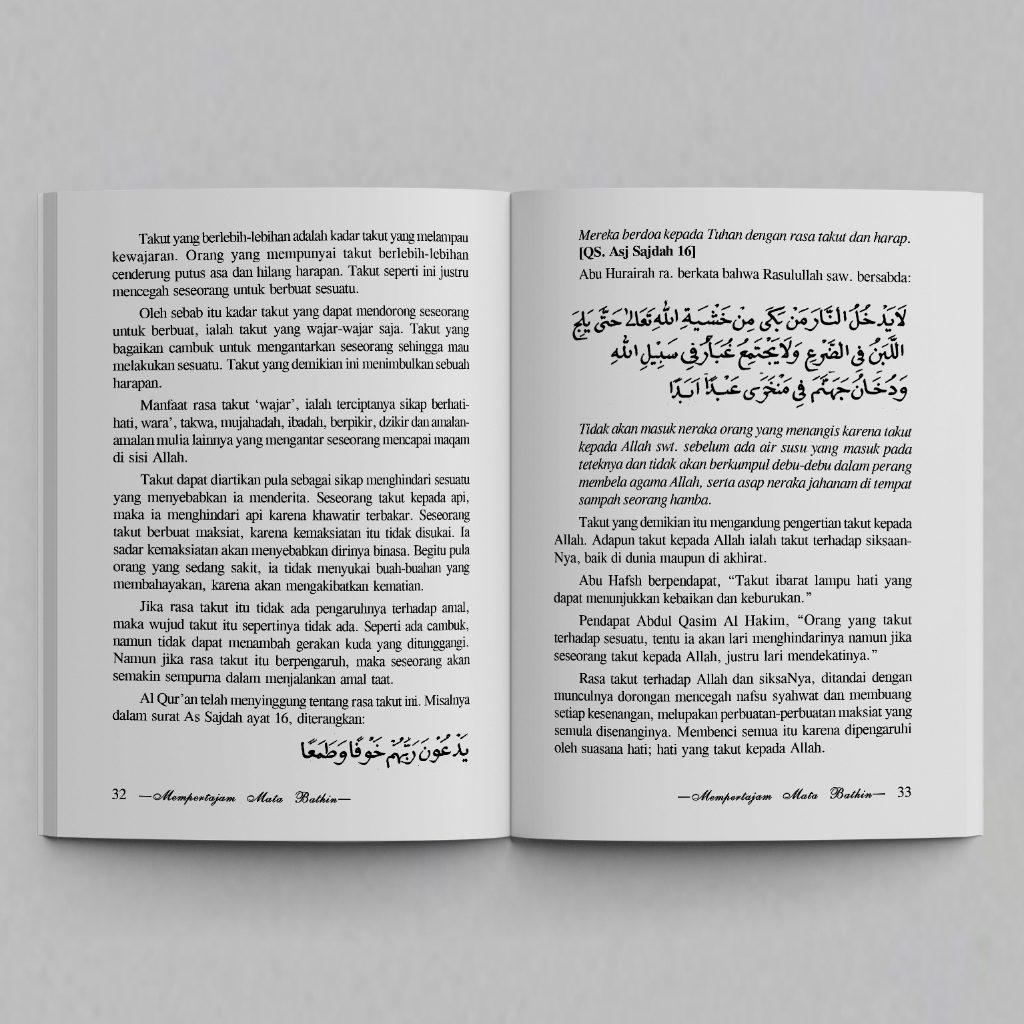 Takut yang berlebih-lebihan adalah kadar takut yang melampau
kewajaran. Orang yang mempunyai takut berlebih-lebihan
cenderung putus asa dan hilang harapan. Takut seperti ini justru
mencegah seseorang untuk berbuat sesuatu.
Oleh sebab itu kadar takut yang dapat mendorong seseorang
untuk berbuat, ialah takut yang wajar-wajar saja. Takut yang
bagaikan cambuk untuk mengantarkan seseorang sehingga mau
melakukan sesuatu. Takut yang demikian ini menimbulkan sebuah
harapan.
Manfaat rasa takut ‘wajar’, ialah terciptanya sikap berhati-
hati, wara’, takwa, mujahadah, ibadah, berpikir, dzikir dan amalan-
amalan mulia lainnya yang mengantar seseorang mencapai maqam
di sisi Allah.
Takut dapat diartikan pula sebagai sikap menghindari sesuatu
yang menyebabkan ia menderita. Seseorang takut kepada api,
maka ia menghindari api karena khawatir terbakar. Seseorang
takut berbuat maksiat, karena kemaksiatan itu tidak disukai. Ia
sadar kemaksiatan akan menyebabkan dirinya binasa. Begitu pula
orang yang sedang sakit, ia tidak menyukai buah-buahan yang
membahayakan, karena akan mengakibatkan kematian.
Jika rasa takut itu tidak ada pengaruhnya terhadap amal,
maka wujud takut itu sepertinya tidak ada. Seperti ada cambuk,
namun tidak dapat menambah gerakan kuda yang ditunggangi.
Namun jika rasa takut itu berpengaruh, maka seseorang akan
semakin sempurna dalam menjalankan amal taat.
Al Qur’an telah menyinggung tentang rasa takut ini. Misalnya
dalam surat As Sajdah ayat 16, diterangkan:
يَدْعُوْنَ رَبَّهُمْ خَوْفًا وَطَمَعًا
32 —Mempertajam Mata Bathin—
Mereka berdoa kepada Tuhan dengan rasa takut dan harap.
[QS. Asj Sajdah 16]
Abu Hurairah ra. berkata bahwa Rasulullah saw. bersabda:
لَايَدْخُلُ النَّارَ مَنْ بَكَى مِنْ خَشْيَةِ اللهِ تَعَالَى حَتَّى يَلِجَ
اللَّبَنُ فِى الضَّرْعِ وَلَايَجْتَمِعُ غُبَارٌ فِي سَبِيْلِ اللهِ
وَدُخَانُ جَهَنَّمَ فِي مَنْخَرَى عَبْدًا اَبَدًا
Tidak akan masuk neraka orang yang menangis karena takut
kepada Allah swt. sebelum ada air susu yang masuk pada
teteknya dan tidak akan berkumpul debu-debu dalam perang
membela agama Allah, serta asap neraka jahanam di tempat
sampah seorang hamba.
Takut yang demikian itu mengandung pengertian takut kepada
Allah. Adapun takut kepada Allah ialah takut terhadap siksaan-
Nya, baik di dunia maupun di akhirat.
Abu Hafsh berpendapat, “Takut ibarat lampu hati yang
dapat menunjukkan kebaikan dan keburukan.”
Pendapat Abdul Qasim Al Hakim, “Orang yang takut
terhadap sesuatu, tentu ia akan lari menghindarinya namun jika
seseorang takut kepada Allah, justru lari mendekatinya.”
Rasa takut terhadap Allah dan siksaNya, ditandai dengan
munculnya dorongan mencegah nafsu syahwat dan membuang
setiap kesenangan, melupakan perbuatan-perbuatan maksiat yang
semula disenanginya. Membenci semua itu karena dipengaruhi
oleh suasana hati; hati yang takut kepada Allah.
—Mempertajam Mata Bathin— 33